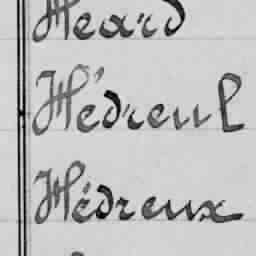 Heard
Hédreul
Hédreux